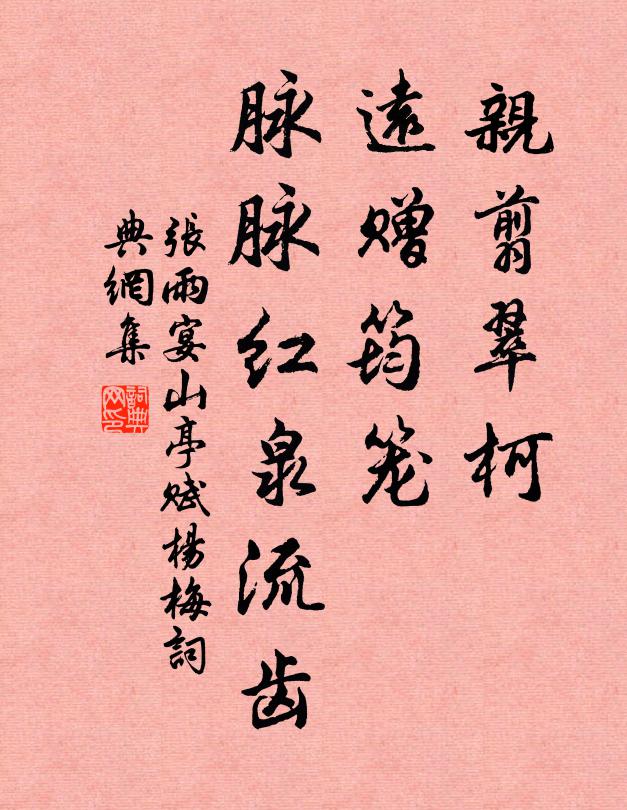 親翦翠柯
遠贈筠笼
脉脉红泉流齿
張雨宴山亭赋楊梅詞
典網集
詞典网印